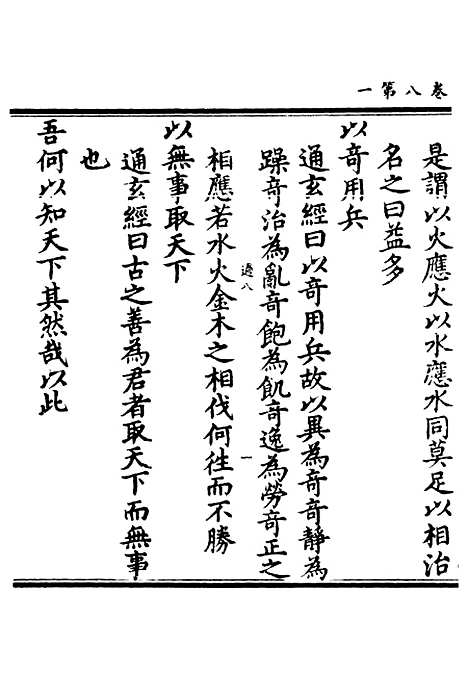 卷八第一
是謂以火應火以水應水同莫足以相治
名之曰益多
以奇用兵
通玄經曰以奇用兵故以異為奇奇靜為
躁奇治為亂奇飽為飢奇逸為勞奇正之
過八 一
相應若水火金木之相伐何往而不勝
以無事取天下
通玄經曰古之善為君者取天下而無事
也
吾何以知天下其然哉以此